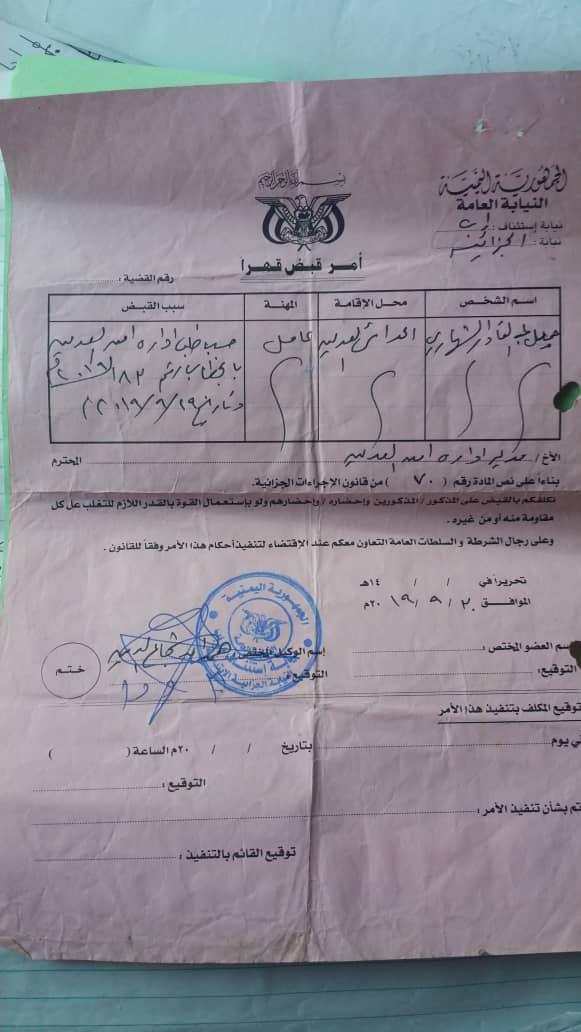 بسم الله الرحمن الرحيم
الجمهورية اليمنية
النيابة العامة
نيابة إستئناف : إب
نيابة : الجزائية
أمر قبض قهراً
رقم القضية :
اسم الشخص
محل الإقامة
المهنة
سبب القبض
عبدالقادر الشهاري
العدين
عامل
حسب طلب ادارة امن العدين
برقم ١٨٢
وتاريخ ٢٠١٩/٩/١٩م
الأخ / مدير ادارة امن العدين المحترم
بناءاً على نص المادة رقم ( ٧٠ ) من قانون الإجراءات الجزائية.
نكلفكم بالقبض على المذكور / المذكورين وإحضاره / وإحضارهم ولو بإستعمال القوة بالقدر اللازم للتغلب عل كل
مقاومة منه أو من غيره .
وعلى رجال الشرطة و السلطات العامة التعاون معكم عند الإقتضاء لتنفيذ أحكام هذا الأمر وفقاً للقانون .
تحريراً في / / ١٤هـ
الموافق ٢٠ / ٩ / ١٩ ٢٠م
إسم العضو المختص :
التوقيع :
إسم الوكيل المختص :
التوقيع :
ختم
الجمهورية اليمنية
توقيع المكلف بتنفيذ هذا الأمر
في يوم بتاريخ / / ٢٠م الساعة ( )
التوقيع :
تم بشأن تنفيذ الأمر :
توقيع القائم بالتنفيذ :